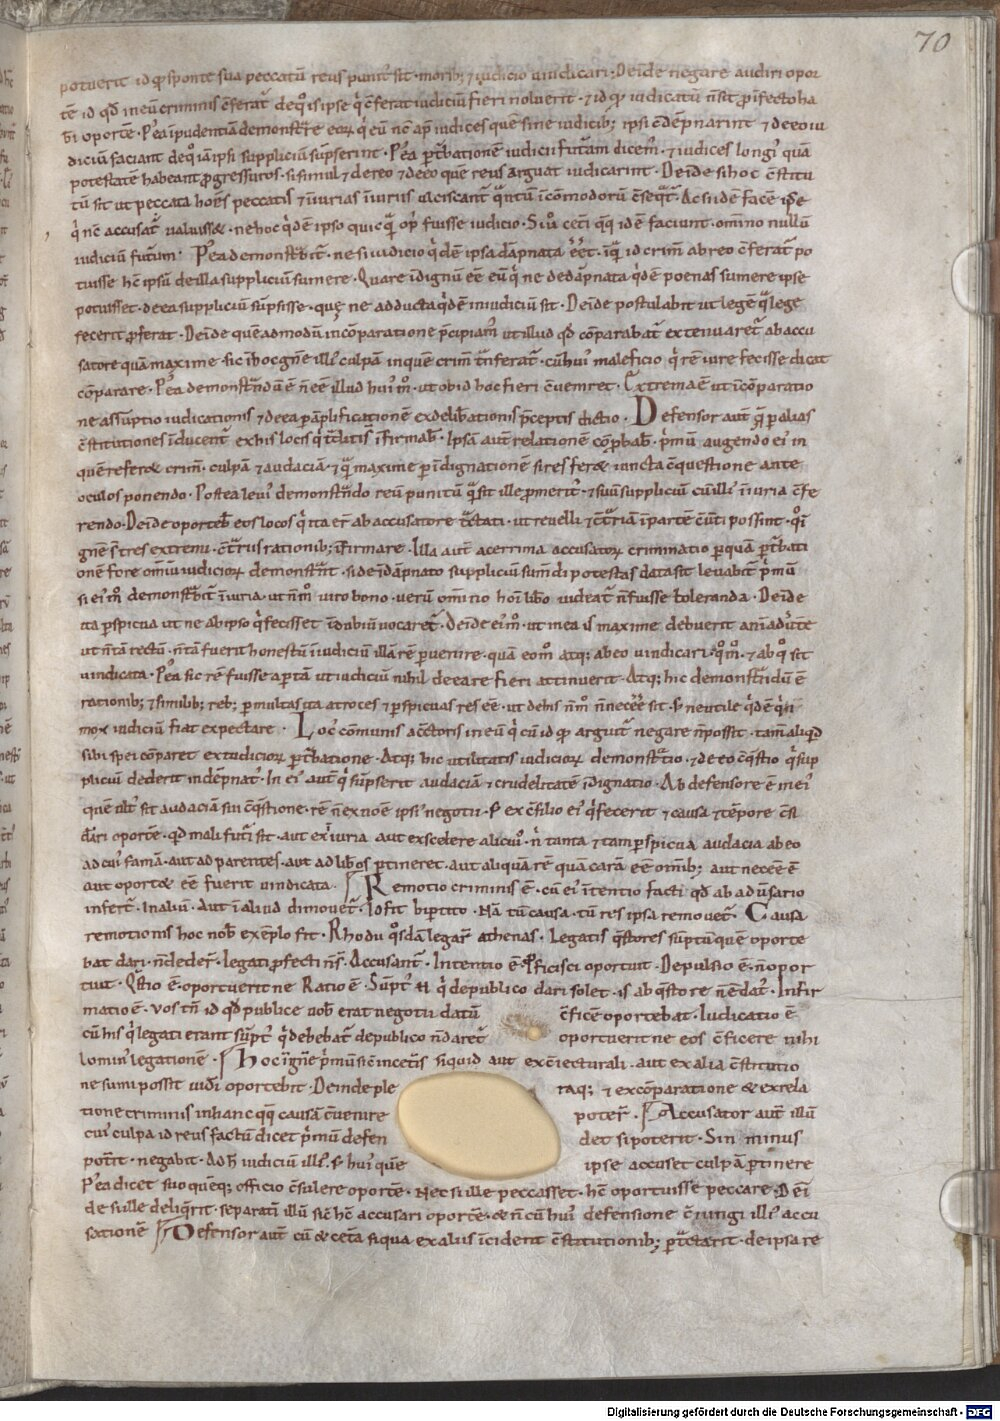 70
potuerit id qͥ sponte sua peccatū reus punit̕ sit · morib; ⁊ iudicio uindicari · Deinde negare audiri opor
tē id qd̄ in eū criminis c̄ferat̄ de q̊ is ipse q̇ c̄ferat iudiciū fieri noluerit · ⁊ id qͥ iudicatū n̄ sit ꝓ infecto ha
diciū faciant de q̊ iā ipsi suppliciū sūpserint ·
potestatē habeant ꝓgressuros · si simul ⁊ de reo ⁊ de eo quē reus arguat iudicarint · Deinde si hoc c̄stitu
tū sit ut peccata hoēs peccatis ⁊ iniurias iniuriis ulciscant̄
iudiciū futurū · P̕ea demonst̄bit̄ · ne si iudicio q̇dē ipsa dāpnata
tuisse hc̄ ipsū de illa suppliciū sumere · Quare īdignū eē eū q̇ ne de dāpnata q̇dē poenas sumere ipse
potuisset · de ea suppliciū sūpsisse · quę ne adducta q̇dē in iudiciū sit · Deinde postulabit ut legē q̄ lege
fecerit ꝓferat · Deinde quē ad modū in cōparatione p̄cipiam̕ ut illud qd̄ cōparabat̄ extenuaret̄ ab accu
satore quā maxime · sic ī hoc gn̄e illi᷒ culpā in quē crim̄ t̄nsferat̄ · cū hui᷒ maleficio q̇ rē iure fecisse dicat
cōparare · P̕ea demonst̄ndū ē n̄ eē illud hui᷒ m̊ · ut ob id hoc fieri c̄uenired · Extrema ē ut ī cōparatio
ne assūptio iudicationis ⁊ de ea ꝑ āplificationē ex delib̄ationis p̄ceptis dictio · Defensor aut̄ q̄ ꝑ alias
c̄stitutiones īducent̄ ex his locis q̇ t̄diti s̄ īfirmab̄ · Ipsā aut̄ relationē cōprobab̄ · p̄mū augendo ei᷒ in
quē referet crim̄ · culpā ⁊ audaciā · ⁊ q̄ maxime ꝑ īdignationē si res feret iuncta c̄questione ante
oculos ponendo · Postea leui᷒ demonst̄ndo reū punitū q̄ sit ille ꝓmerit᷒ · ⁊ suū suppliciū cū illi᷒ iniuria c̄fe
rendo · Deinde oporteb̄ eos locos q̇ ita er̄ ab accusatore t̄ctati · ut reuelli ⁊ c̄trariā ī partē c̄uerti possint · q̊i
gn̄e s̄ tres extremi · c̄trariis rationib; īfirmare · Illa aut̄ acerrima accusatoꝝ criminatio ꝑ quā ꝑt̄bati
onē fore omniū iudicioꝝ demonst̄nt · si de īdāpnato supplicii sumdi potestas data sit leuabit̄ p̄mū
si ei᷒ m̊ demonst̄bit̄ iniuria · ut n̄ m̊ uiro bono · uerū omnino hoī lib̄o uideat̄ n̄ fuisse toleranda · Deinde
ita ꝑspicua ut ne ab ipso q̇ fecisset ī dubiū uocaret̄ · Deinde ei᷒ m̊ · ut in ea is maxime debuerit animaduerte
ut n̄ tā rectū · n̄ tā fuerit honestū ī iudiciū illā rē ꝑuenire · quā eo m̊ atq; ab eo uindicari · q̊ m̊ · ⁊ ab q̊ sit
uindicata · P̕ea sic rē fuisse aꝑtā ut iudiciū nihil de ea re fieri attinuerit · Atq; hic demonst̄ndū ē
rationib; ⁊ similib; reb; ꝑmultas ita atroces ⁊ ꝑspicuas res eē · ut de his n̄ m̊ n̄ necc̄e sit
mox iudiciū fiat expectare · Loc᷒ cōmunis accusatoris in eū q̇ cū id qͥ arguit̄ negare n̄ possit · tam̄ aliqd̄
sibi spei cōparet ex iudicioꝝ ꝑt̄batione · Atq; hic utilitatis iudicioꝝ demonst̄tio · ⁊ de eo c̄q̄stio q̇ sup
pliciū dederit indēpnat᷒ · In ei᷒ aut̄ q̇ sūpserit audaciā ⁊ crudelitatē īdignatio · Ab defensore ē in ei᷒
quē ult᷒ sit audaciā sui c̄q̄stione · rē n̄ ex noīe ipsi᷒ negotii · s; ex c̄silio ei᷒ q̇ fecerit ⁊ causa ⁊ tēpore c̄si
d̄ari oportē · qd̄ mali futurū sit · aut ex iniuria aut ex scelere alicui᷒ · n̄ tanta ⁊ tam ꝑspicua audacia ab eo
ad cui᷒ famā · aut ad parentes · aut ad lib̄os ꝑtineret · aut aliquā rē quā carā eē omīb; aut necc̄e ē
aut oportet eē fuerit uindicata · Remotio criminis ē · cū ei᷒ intentio facti qd̄ ab aduersario
infert̄ · in aliū · Aut ī aliud dimouet̄ · Id fit biꝑtito · Nā tū causa · tū res ipsa remouet̄ · Causa
remotionis hoc nob̄ exēplo sit · Rhodii q̊sdā legar̄ athenas · Legatis q̄stores sūptū quē oporte
bat dari · n̄ deder̄ · legati ꝓfecti n̄ s̄ · Accusant̄ · Intentio ē · ꝓficisci oportuit · Depulsio ē · n̄ opor
tuit · Q̄stio ē · oportuerit ne Ratio ē · Sūpt᷒ n̄ q̇ de publico dari solet · is ab q̄store n̄ ē dat᷒ · Infir
matio ē · Vos tn̄ id qd̄ publice uob̄ erat negotii datū c̄ficere oportebat · Iudicatio ē ·
cū his q̇ legati erant sūpt᷒ q̇ debebat̄ de publico n̄ daret̄ oportuerit ne eos c̄ficere nihi
lomin᷒ legationē · Hoc in gn̄e p̄mū sic̄ in cet̄is si quid aut ex c̄iecturali · aut ex alia c̄stitutio
ne sumi possit uideri oportebit · Deinde ple raq; ⁊ ex cōparatione ⁊ ex rela
tione criminis in hanc qq̄ causā c̄uenire poter̄ · Accusator aut̄ illū
cui᷒ culpa id reus factū dicet p̄mū defen det si poterit · Sin minus
pot̄it · negabit · Ad h̄ iudiciū illi᷒ · s; hui᷒ quē ipse accuset culpā ꝑtinere
P̕ea dicet suo quēq; officio c̄sulere oportē · Nec si ille peccasset · hc̄ oportuisse peccare · Dei
de si ille deliq̄rit · separatī illū sic̄ hc̄ accusari oportē · et n̄ cū hui᷒ defensione c̄iungi illi᷒ accu
sationē Defensor aut̄ cū ⁊ cet̄a si qua ex aliis īcident c̄stitutionib; ꝑt̄ctarit · de ipsa re
Digitalisierung gefördert durch die Deutsche Forschungsgemeinschaft - DFG